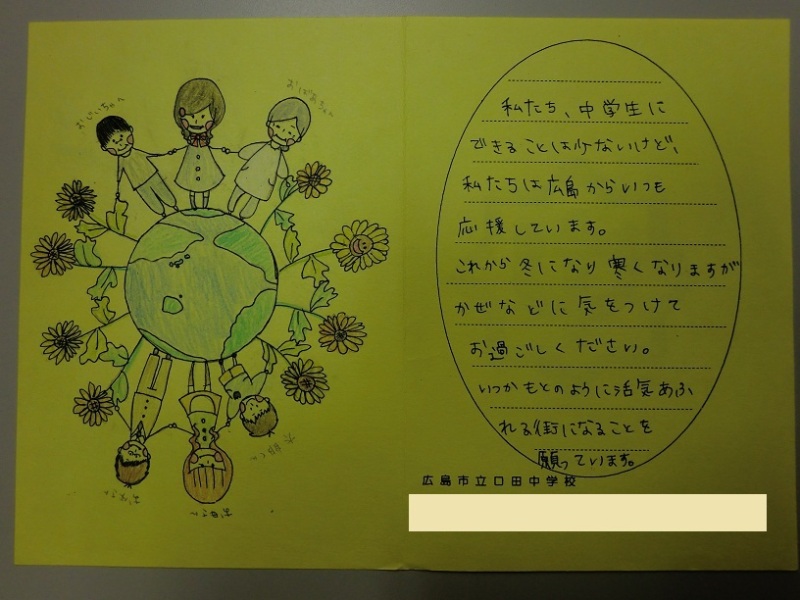 おじいちゃん
おばあちゃん
私たち、中学生に
できることは少ないけど、
私たちは広島からいつも
応援しています。
これから冬になり寒くなりますが
かぜなどに気をつけて
お過ごしください。
いつかもとのように活気あふ
れる街になることを
願っています。
広島市立口田中学校